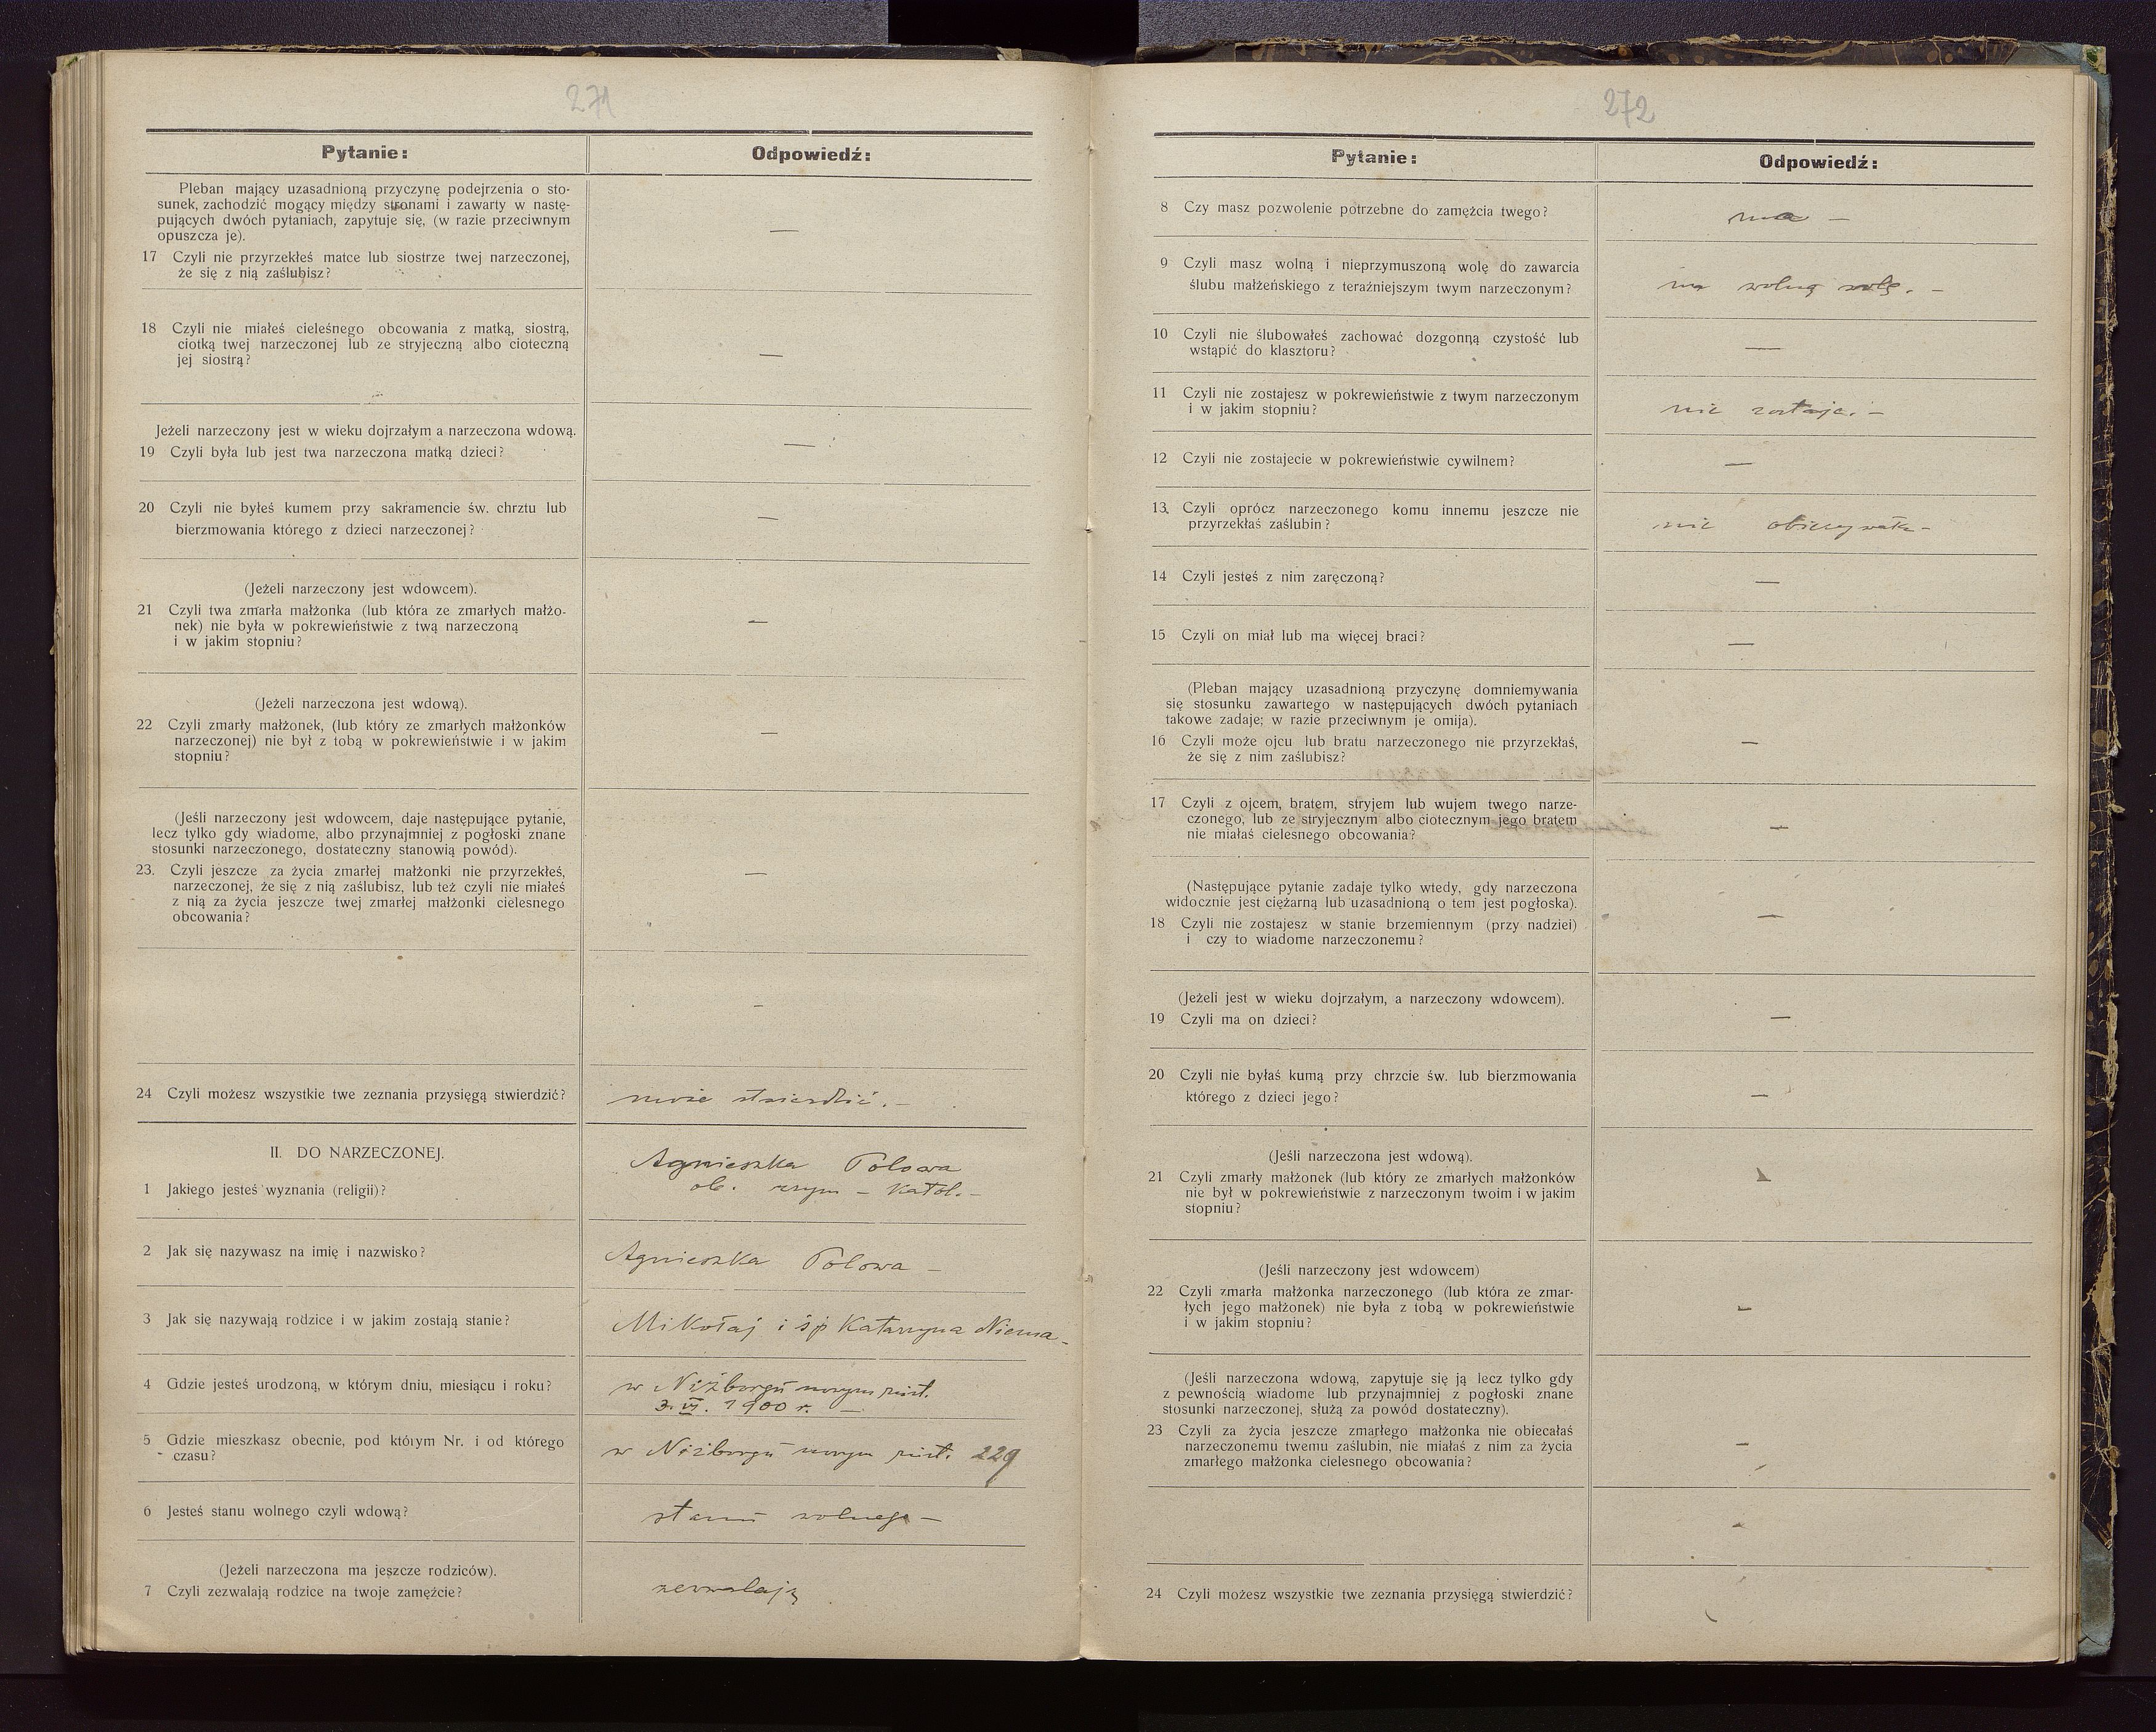 271
Pytanie:
Odpowiedź:
Pleban mający uzasadnioną przyczynę podejrzenia o sto-
sunek, zachodzić mogący między stronami i zawarty w nastę-
pujących dwóch pytaniach, zapytuje się, (w razie przeciwnym
opuszcza je).
—
17 Czyli nie przyrzekłeś matce lub siostrze twej narzeczonej,
że się z nią zaślubisz?
18 Czyli nie miałeś cieleśnego obcowania z matką, siostrą,
ciotką twej narzeczonej lub ze stryjeczną albo cioteczną
jej siostrą?
—
Jeżeli narzeczony jest w wieku dojrzałym a narzeczona wdową.
—
19 Czyli była lub jest twa narzeczona matką dzieci?
20 Czyli nie byłeś kumem przy sakramencie św. chrztu lub
bierzmowania którego z dzieci narzeczonej?
—
(Jeżeli narzeczony jest wdowcem).
21 Czyli twa zmarła małżonka (lub która ze zmarłych małżo-
nek) nie była w pokrewieństwie z twą narzeczoną
i w jakim stopniu?
—
(Jeżeli narzeczona jest wdową).
22 Czyli zmarły małżonek, (lub który ze zmarłych małżonków
narzeczonej) nie był z tobą w pokrewieństwie i w jakim
stopniu?
—
(Jeśli narzeczony jest wdowcem, daje następujące pytanie,
lecz tylko gdy wiadome, albo przynajmniej z pogłoski znane
stosunki narzeczonego, dostateczny stanowią powód).
23. Czyli jeszcze za życia zmarłej małżonki nie przyrzekłeś,
narzeczonej, że się z nią zaślubisz, lub też czyli nie miałeś
z nią za życia jeszcze twej zmarłej małżonki cielesnego
obcowania?
—
—
24 Czyli możesz wszystkie twe zeznania przysięgą stwierdzić?
może stwierdzić. —
II. DO NARZECZONEJ.
Agnieszka Polowa
1 Jakiego jesteś wyznania (religii)?
ob. rzym - katol. —
2 Jak się nazywasz na imię i nazwisko?
Agnieszka Polowa —
3 Jak się nazywają rodzice i w jakim zostają stanie?
Mikołaj i śp Katarzyna Niema —
4 Gdzie jesteś urodzoną, w którym dniu, miesiącu i roku?
w Niżborgu nowym
3. VI. 1900 r. —
5 Gdzie mieszkasz obecnie, pod którym Nr. i od którego
czasu?
w Niżborgu nowym 229
6 Jesteś stanu wolnego czyli wdową?
stanu wolnego —
(Jeżeli narzeczona ma jeszcze rodziców).
7 Czyli zezwalają rodzice na twoje zamężcie?
zezwalają
272
Pytanie:
Odpowiedź:
8 Czy masz pozwolenie potrzebne do zamężcia twego?
ma —
9 Czyli masz wolną i nieprzymuszoną wolę do zawarcia
ślubu małżeńskiego z teraźniejszym twym narzeczonym?
ma wolną wolę. —
10 Czyli nie ślubowałeś zachować dozgonną czystość lub
wstąpić do klasztoru?
—
11 Czyli nie zostajesz w pokrewieństwie z twym narzeczonym
i w jakim stopniu?
nie zostaje. —
12 Czyli nie zostajecie w pokrewieństwie cywilnem?
—
13. Czyli oprócz narzeczonego komu innemu jeszcze nie
przyrzekłaś zaślubin?
nie obiecywała —
14 Czyli jesteś z nim zaręczoną?
—
15 Czyli on miał lub ma więcej braci?
—
(Pleban mający uzasadnioną przyczynę domniemywania
się stosunku zawartego w następujących dwóch pytaniach
takowe zadaje; w razie przeciwnym je omija).
16 Czyli może ojcu lub bratu narzeczonego nie przyrzekłaś,
że się z nim zaślubisz?
—
17 Czyli z ojcem, bratem, stryjem lub wujem twego narze-
czonego, lub ze stryjecznym albo ciotecznym jego bratem
nie miałaś cielesnego obcowania?
—
(Następujące pytanie zadaje tylko wtedy, gdy narzeczona
widocznie jest ciężarną lub uzasadnioną o tem jest pogłoska).
18 Czyli nie zostajesz w stanie brzemiennym (przy nadziei)
i czy to wiadome narzeczonemu?
—
(Jeżeli jest w wieku dojrzałym, a narzeczony wdowcem).
19 Czyli ma on dzieci?
—
20 Czyli nie byłaś kumą przy chrzcie św. lub bierzmowania
którego z dzieci jego?
—
(Jeśli narzeczona jest wdową).
21 Czyli zmarły małżonek (lub który ze zmarłych małżonków
nie był w pokrewieństwie z narzeczonym twoim i w jakim
stopniu?
—
(Jeśli narzeczony jest wdowcem)
22 Czyli zmarła małżonka narzeczonego (lub która ze zmar-
łych jego małżonek) nie była z tobą w pokrewieństwie
i w jakim stopniu?
—
(Jeśli narzeczona wdową, zapytuje się ją lecz tylko gdy
z pewnością wiadome lub przynajmniej z pogłoski znane
stosunki narzeczonej, służą za powód dostateczny).
23 Czyli za życia jeszcze zmarłego małżonka nie obiecałaś
narzeczonemu twemu zaślubin, nie miałaś z nim za życia
zmarłego małżonka cielesnego obcowania?
—
—
24 Czyli możesz wszystkie twe zeznania przysięgą stwierdzić?